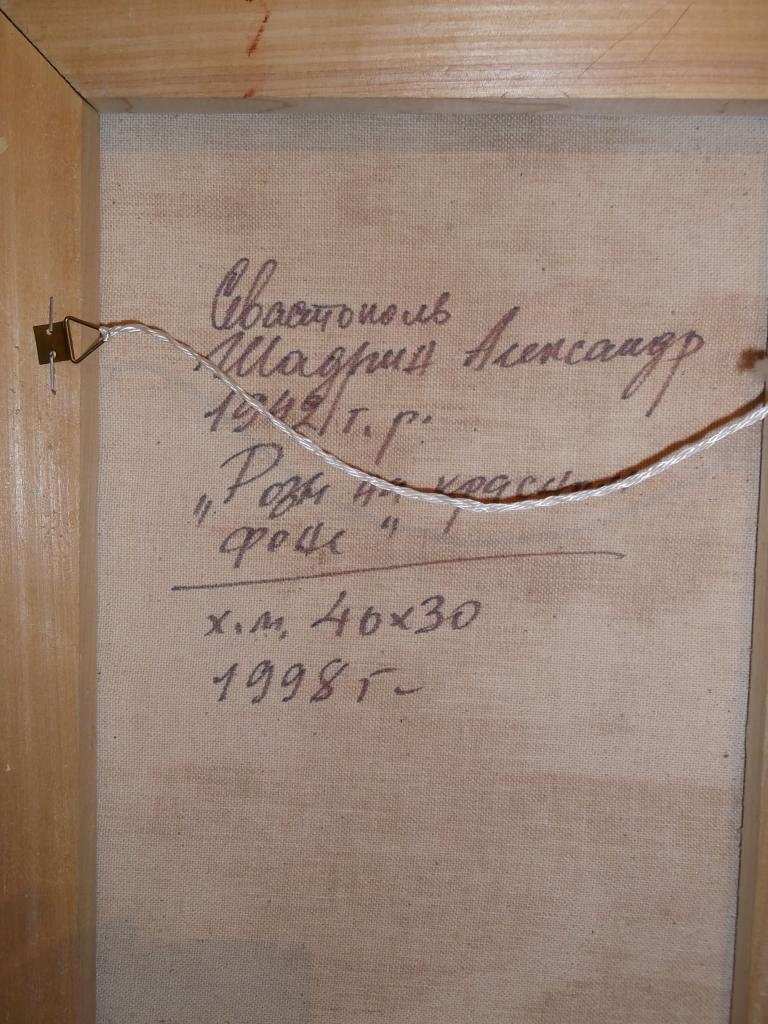 Севастополь
Шадрин Александр
1942 г. р.
„Розы на красном
фоне"
х.м. 40х30
1998 г-